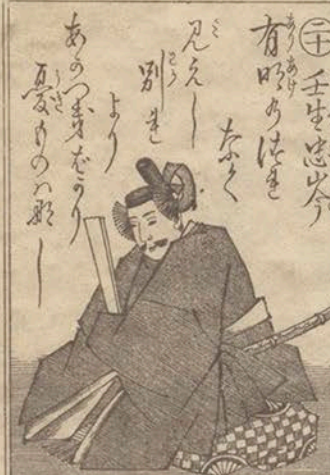 三十 壬生忠岑
有明のつれ
なく
見えし
別れ
より
あかつきばかり
憂ものハなし